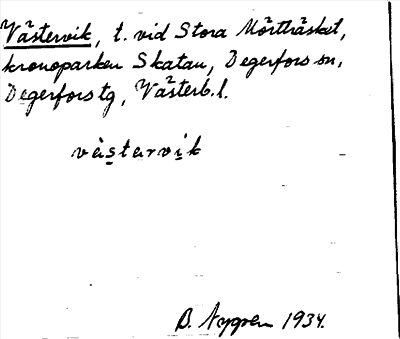 Västervik, t. vid Stora Mörtträsket,
kronoparken Skatan, Degerfors sn,
Degerfors tg, Västerb. l.
vàstarvik
B. Nygren 1934.